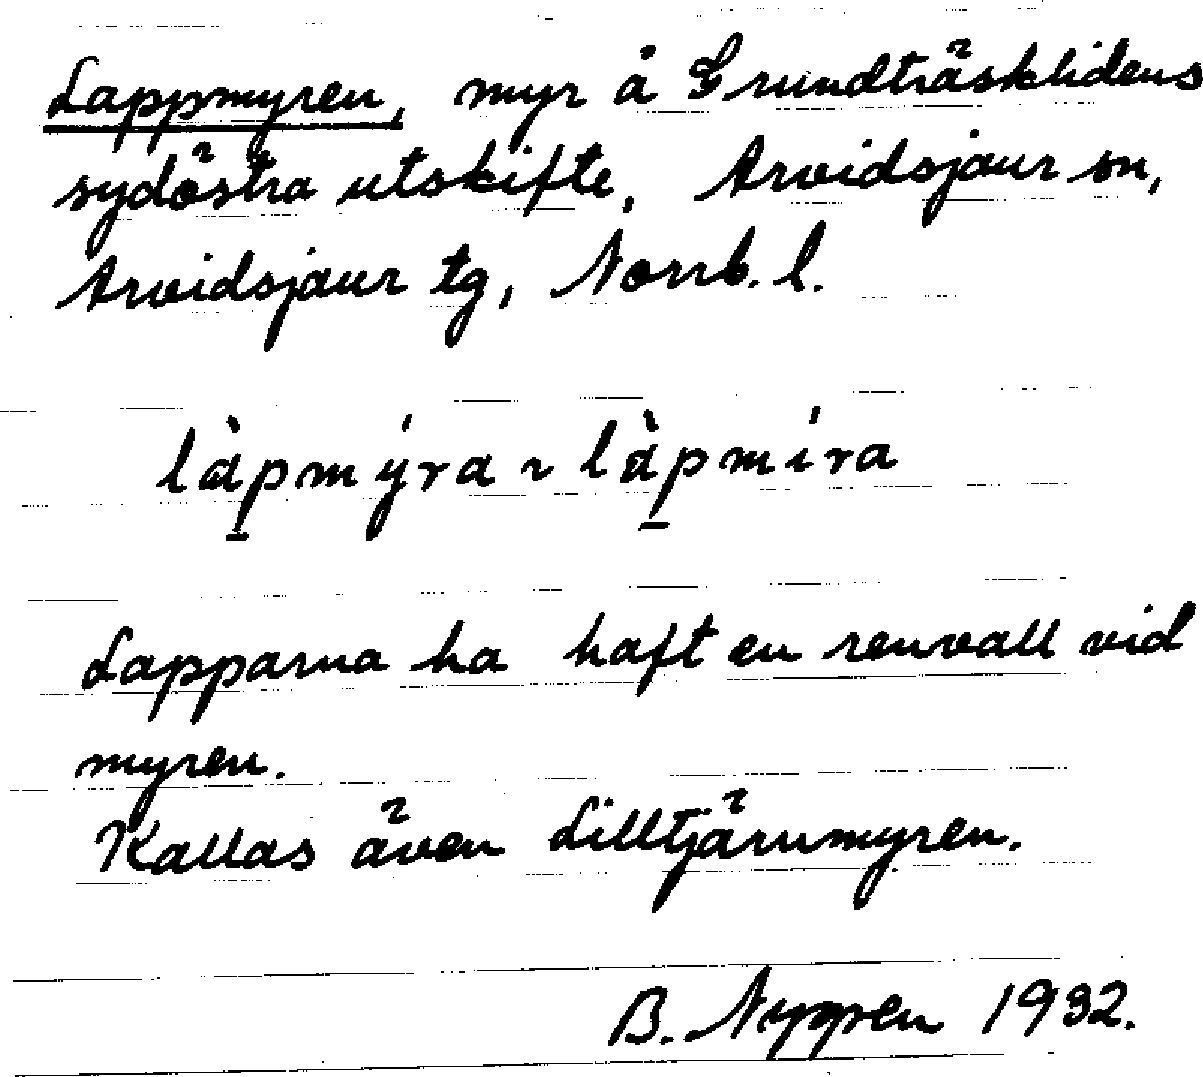 Lappmyren, myr å Grundträsklidens
sydöstra utskifte, Arvidsjaur sn,
Arvidsjaur tg, Norrb. l.
làpmýra ~ làpmíra
Lapparna ha haft en renvall vid
myren.
Kallas även Lilltjärnmyren.
B. Nyppen 1932.